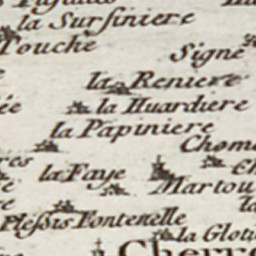 la Sursiniere
Touche
Signé
la Reniere
la Huardiere
la Papiniere
la Faye
Martou
Plessis Fontenelle
la Glot
Cherre